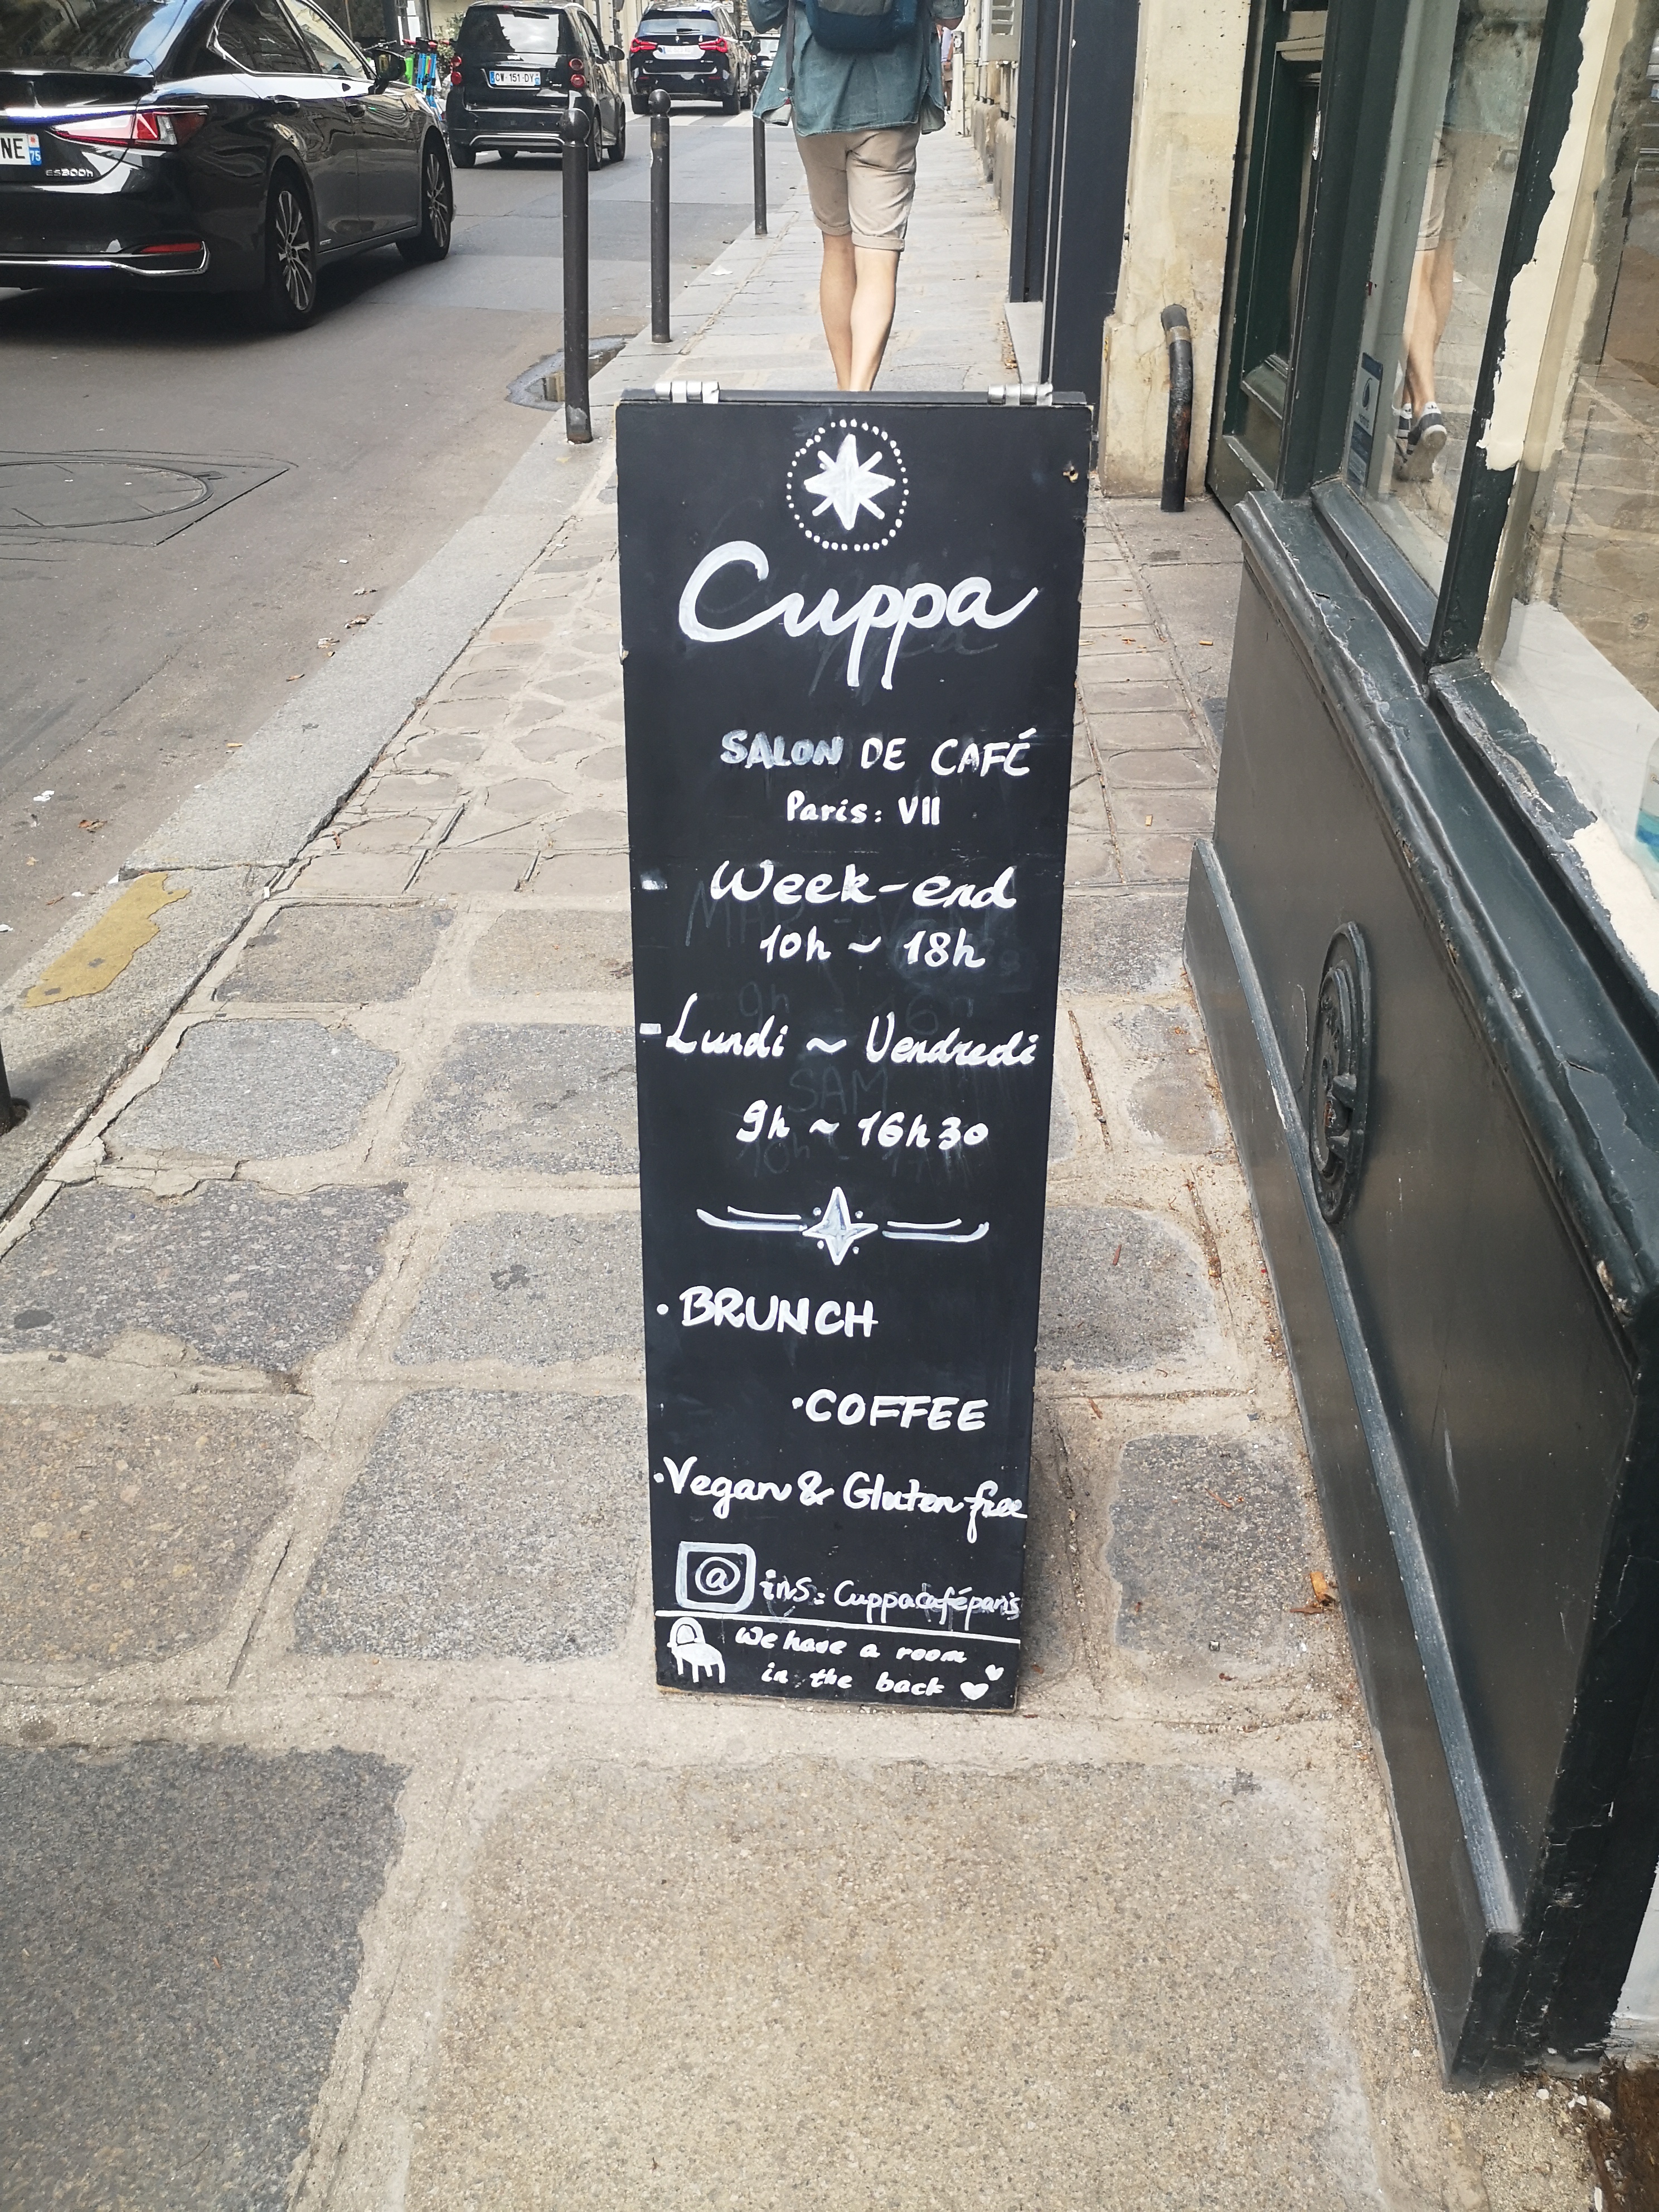 Cuppa
SALON DE CAFÉ
Paris: VII
Week-end
10h ~ 18h
Lundi ~ Vendredi
9h ~ 16h30
• BRUNCH
• COFFEE
• Vegan & Gluten free
@ ins: Cuppacaféparis
We have a room
in the back
CW-151-DY
NE
75
ES300h